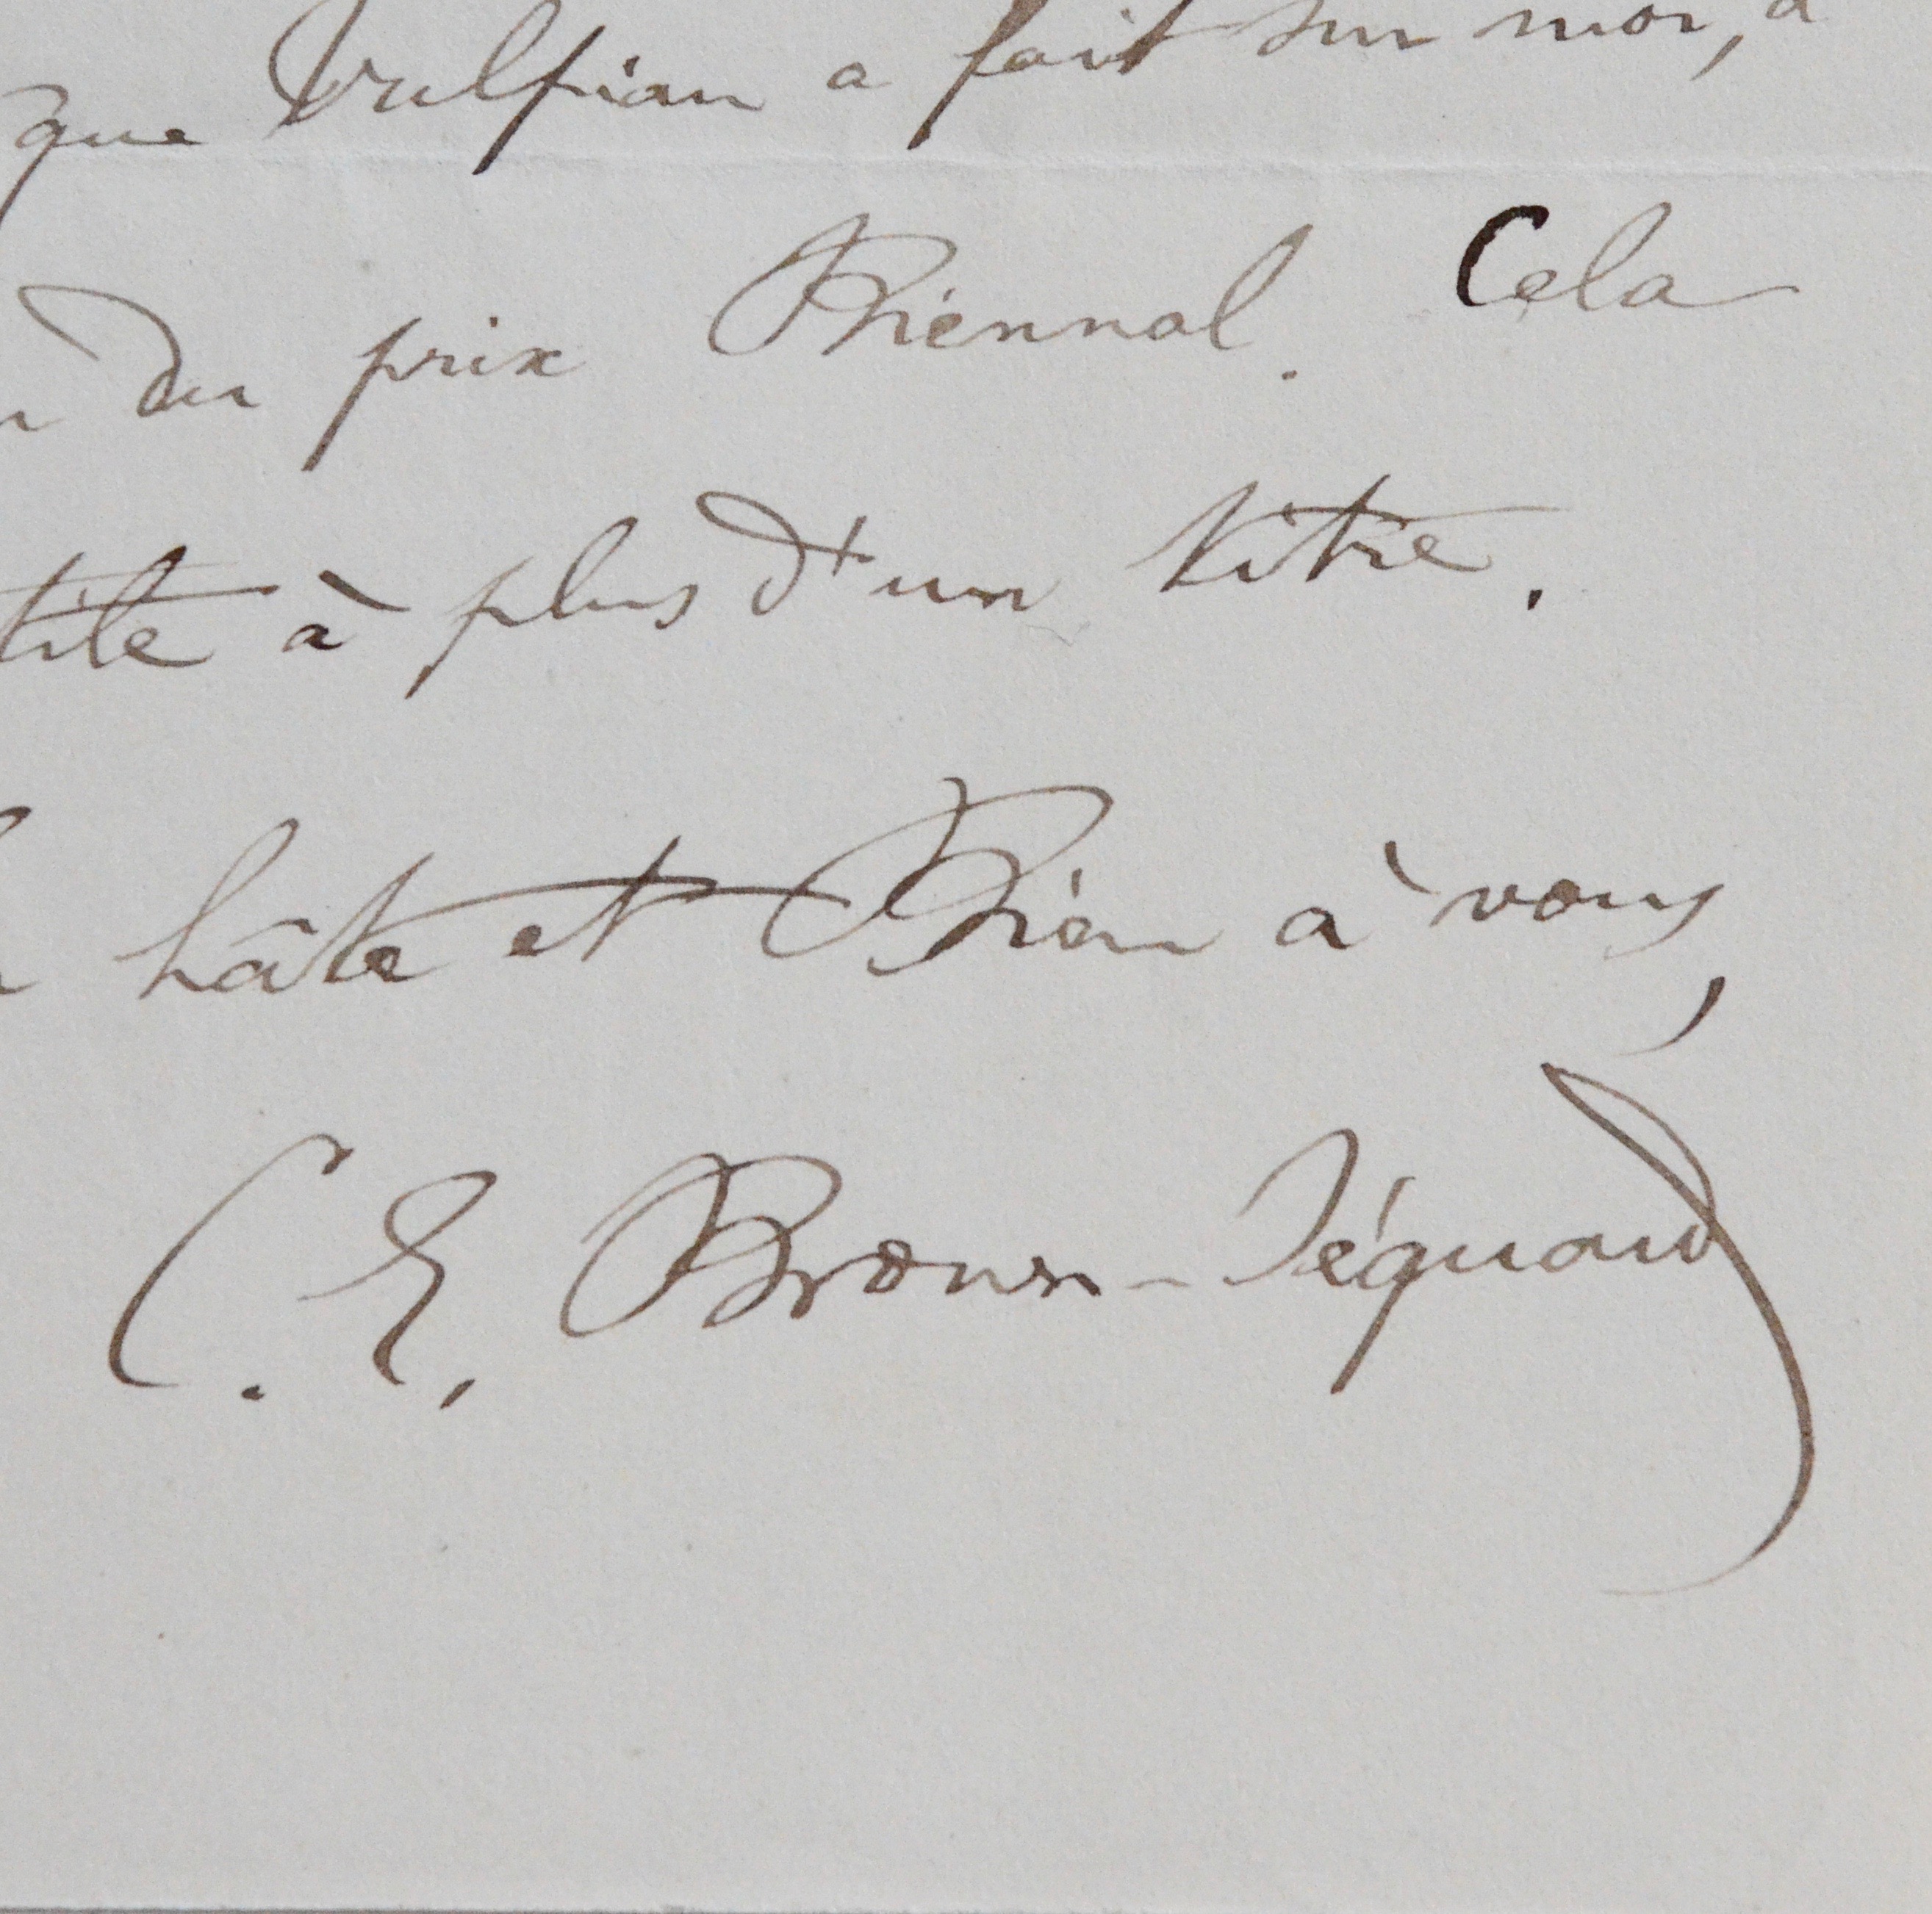 que Vulpian a fait sur moi, à
du prix Biennal. Cela
tile à plus d'un titre.
hâte et Bien à vous,
C. E. Brown-Séquard